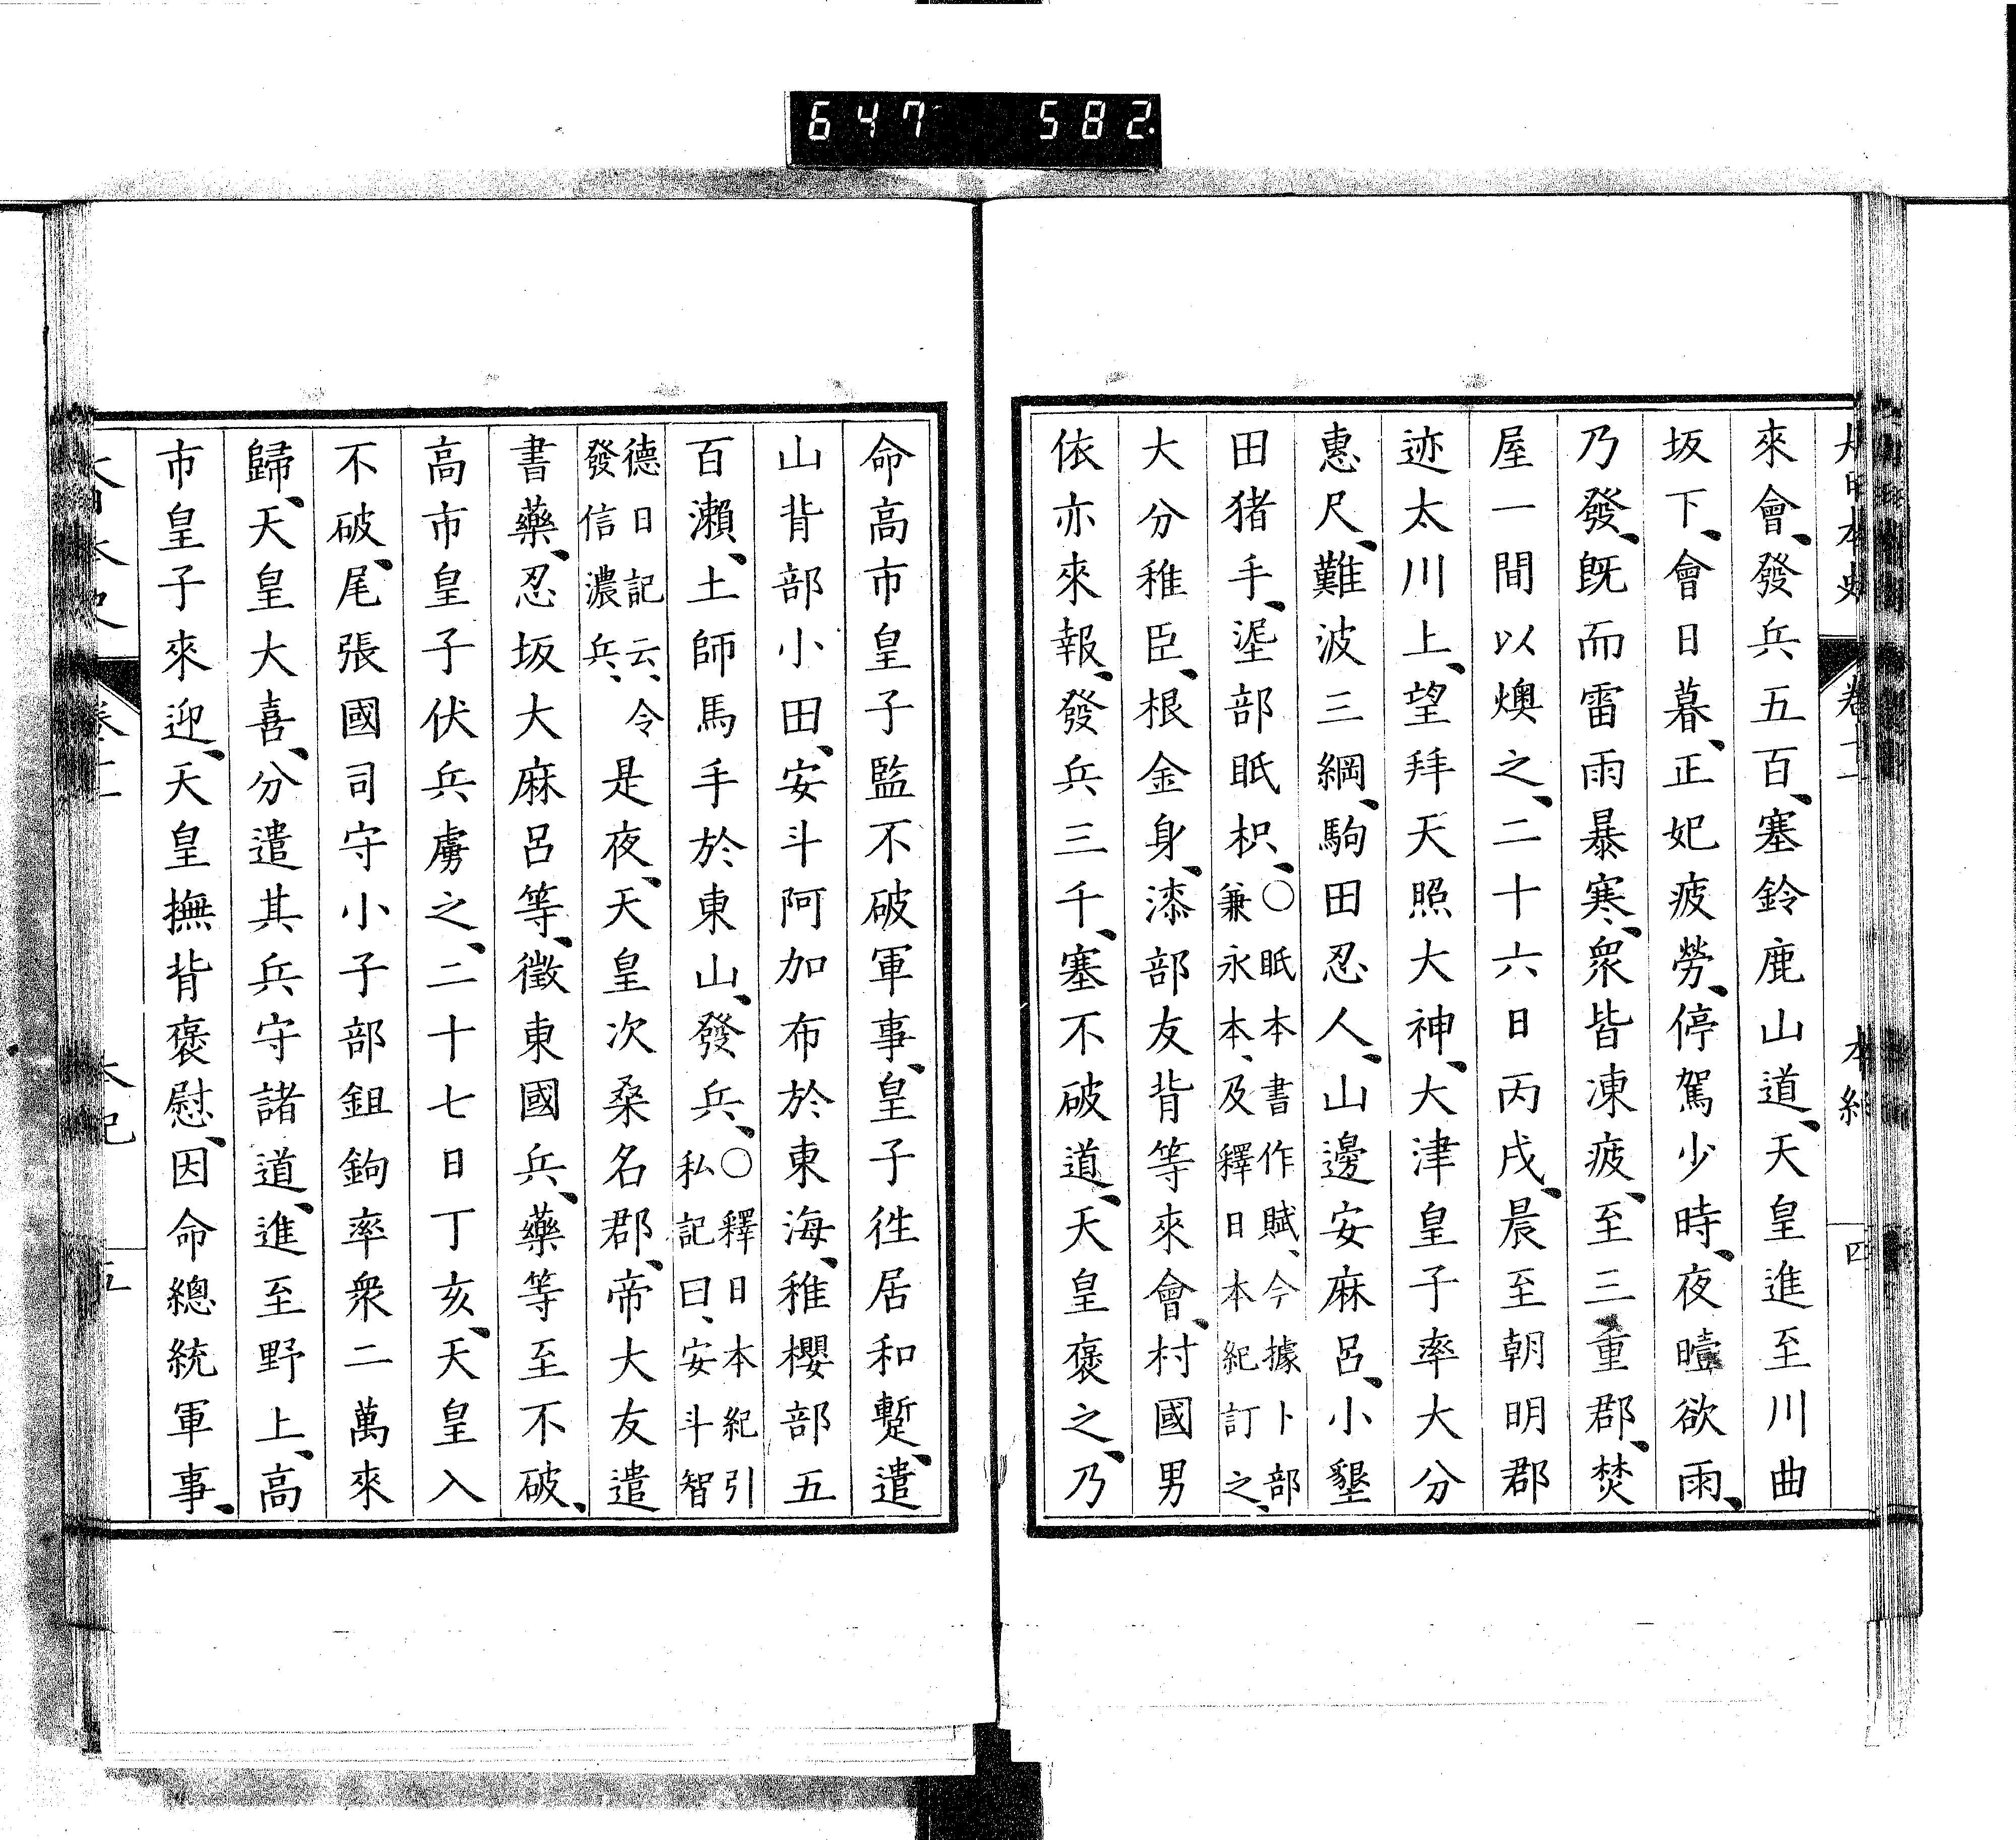 647 582.
大日本史 卷十 本紀 四
來會、發兵五百、塞鈴鹿山道、天皇進至川曲
坂下、會日暮、正妃疲勞、停駕少時、夜曀欲雨、
乃發、既而雷雨暴寒、衆皆凍疲、至三重郡、焚
屋一間以燠之、二十六日丙戌、晨至朝明郡
迹太川上、望拜天照大神、大津皇子率大分
惠尺、難波三綱、駒田忍人、山邊安麻呂、小墾
田猪手、埿部眂枳、○眂本書作賦、今據卜部
兼永本、及釋日本紀訂之、
大分稚臣、根金身、漆部友背等來會、村國男
依亦來報、發兵三千、塞不破道、天皇褒之、乃
命高市皇子監不破軍事、皇子徃居和蹔、遣
山背部小田、安斗阿加布於東海、稚櫻部五
百瀨、土師馬手於東山、發兵、○釋日本紀引
私記曰、安斗智
德日記云、令
發信濃兵、是夜、天皇次桑名郡、帝大友遣
書藥、忍坂大麻呂等、徵東國兵、藥等至不破、
高市皇子伏兵虜之、二十七日丁亥、天皇入
不破、尾張國司守小子部鉏鉤率衆二萬來
歸、天皇大喜、分遣其兵守諸道、進至野上、高
市皇子來迎、天皇撫背褒慰、因命總統軍事、
本紀 五